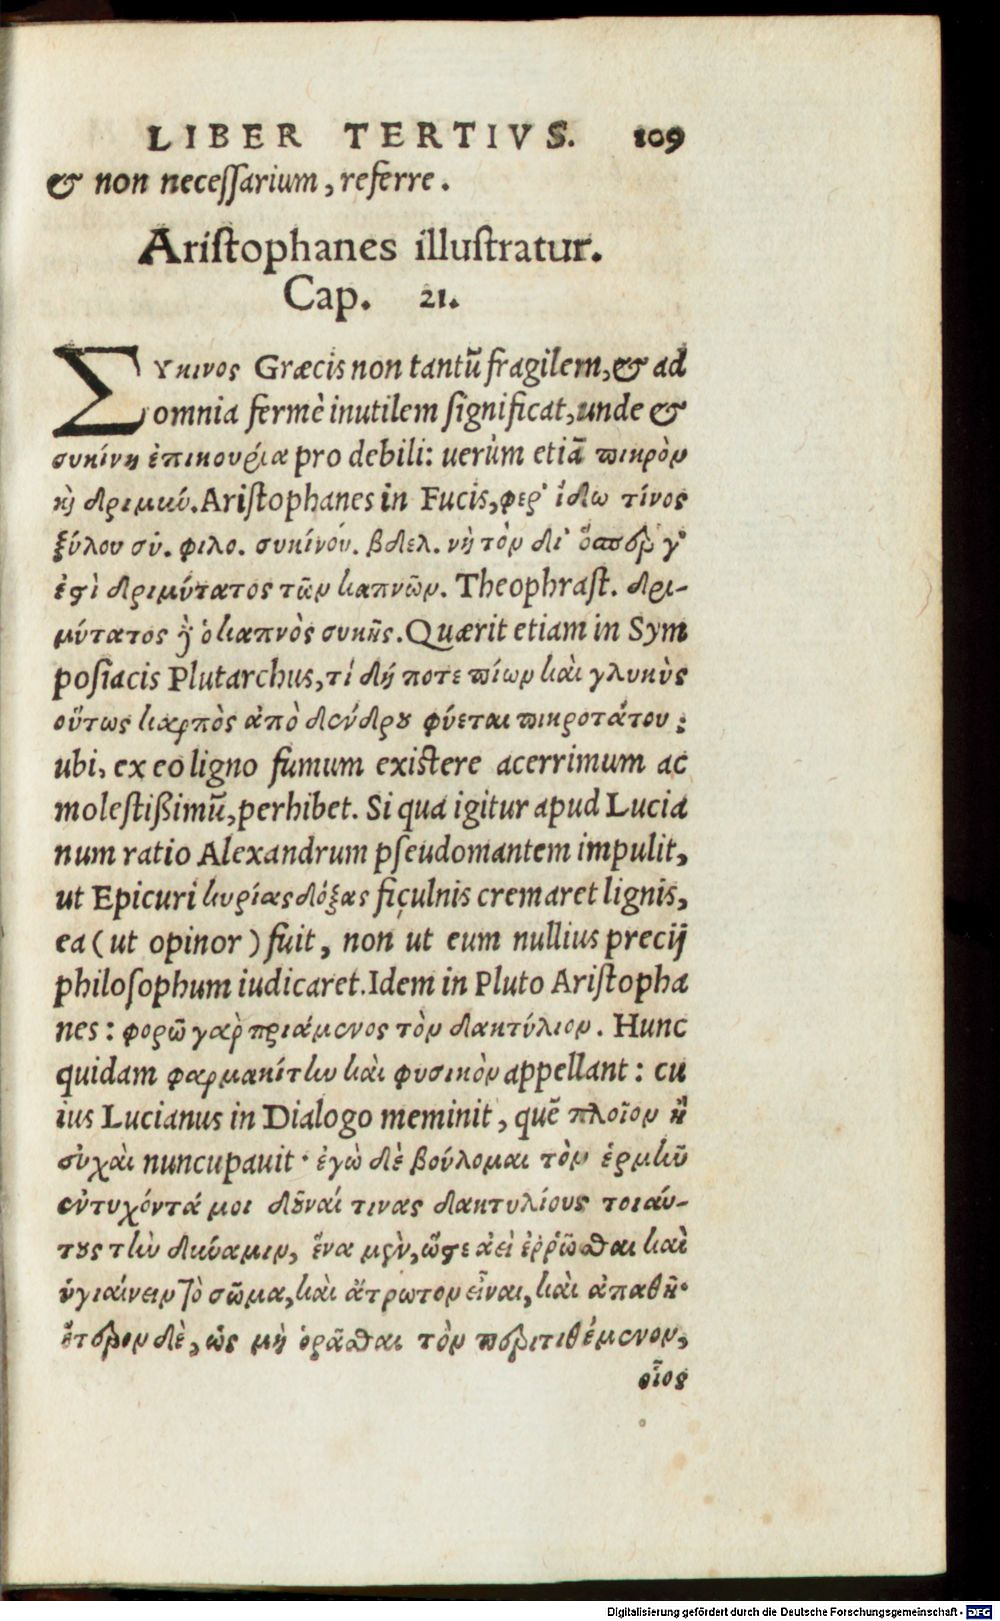 LIBER TERTIVS. 109
& non necessarium, referre.
Aristophanes illustratur.
Cap. 21.
ΣΥκινος Græcis non tantũ fragilem, & ad
omnia fermè inutilem significat, unde &
συκίνη ἐπικουρία pro debili: uerùm etiã πικρὸν
κὴ δριμκύ. Aristophanes in Fucis, φερ' ἴδω τίνος
ξύλου σύ. φιλο. συκίνου. βδελ. νὴ τὸν δι' ὅπερ γ'
ἐστὶ δριμύτατος τῶν καπνῶν. Theophrast. δρι-
μύτατος ἢ ὁ καπνὸς συκῆς. Quærit etiam in Sym
posiacis Plutarchus, τί δή ποτε πίων καὶ γλυκὺς
οὕτως καρπὸς ἀπὸ δένδρου φύεται πικροτάτου;
ubi, ex eo ligno fumum existere acerrimum ac
molestißimũ, perhibet. Si qua igitur apud Lucia
num ratio Alexandrum pseudomantem impulit,
ut Epicuri κυρίας δόξας ficulnis cremaret lignis,
ea (ut opinor) fuit, non ut eum nullius precij
philosophum iudicaret. Idem in Pluto Aristopha
nes: φορῶ γαρ πριάμενος τὸν δακτύλιον. Hunc
quidam φαρμακίτην καὶ φυσικὸν appellant: cu
ius Lucianus in Dialogo meminit, quẽ πλοῖον ἢ
σύχαὶ nuncupauit· ἐγὼ δὲ βούλομαι τὸν ἑρμῆν
ἐντυχόντά μοι δοῦναί τινας δακτυλίους τοιαύ-
τους τὴν δκύαμιν, ἕνα μὲν, ὥστε ἀεὶ ἐρρῶσθαι καὶ
ὑγιαίνειν τὸ σῶμα, καὶ ἄτρωτον εἶναι, καὶ ἀπαθῆ·
ἕτερον δὲ, ὡς μὴ ὁρᾶσθαι τὸν περιτιθέμενον,
οἷος
Digitalisierung gefördert durch die Deutsche Forschungsgemeinschaft - DFG